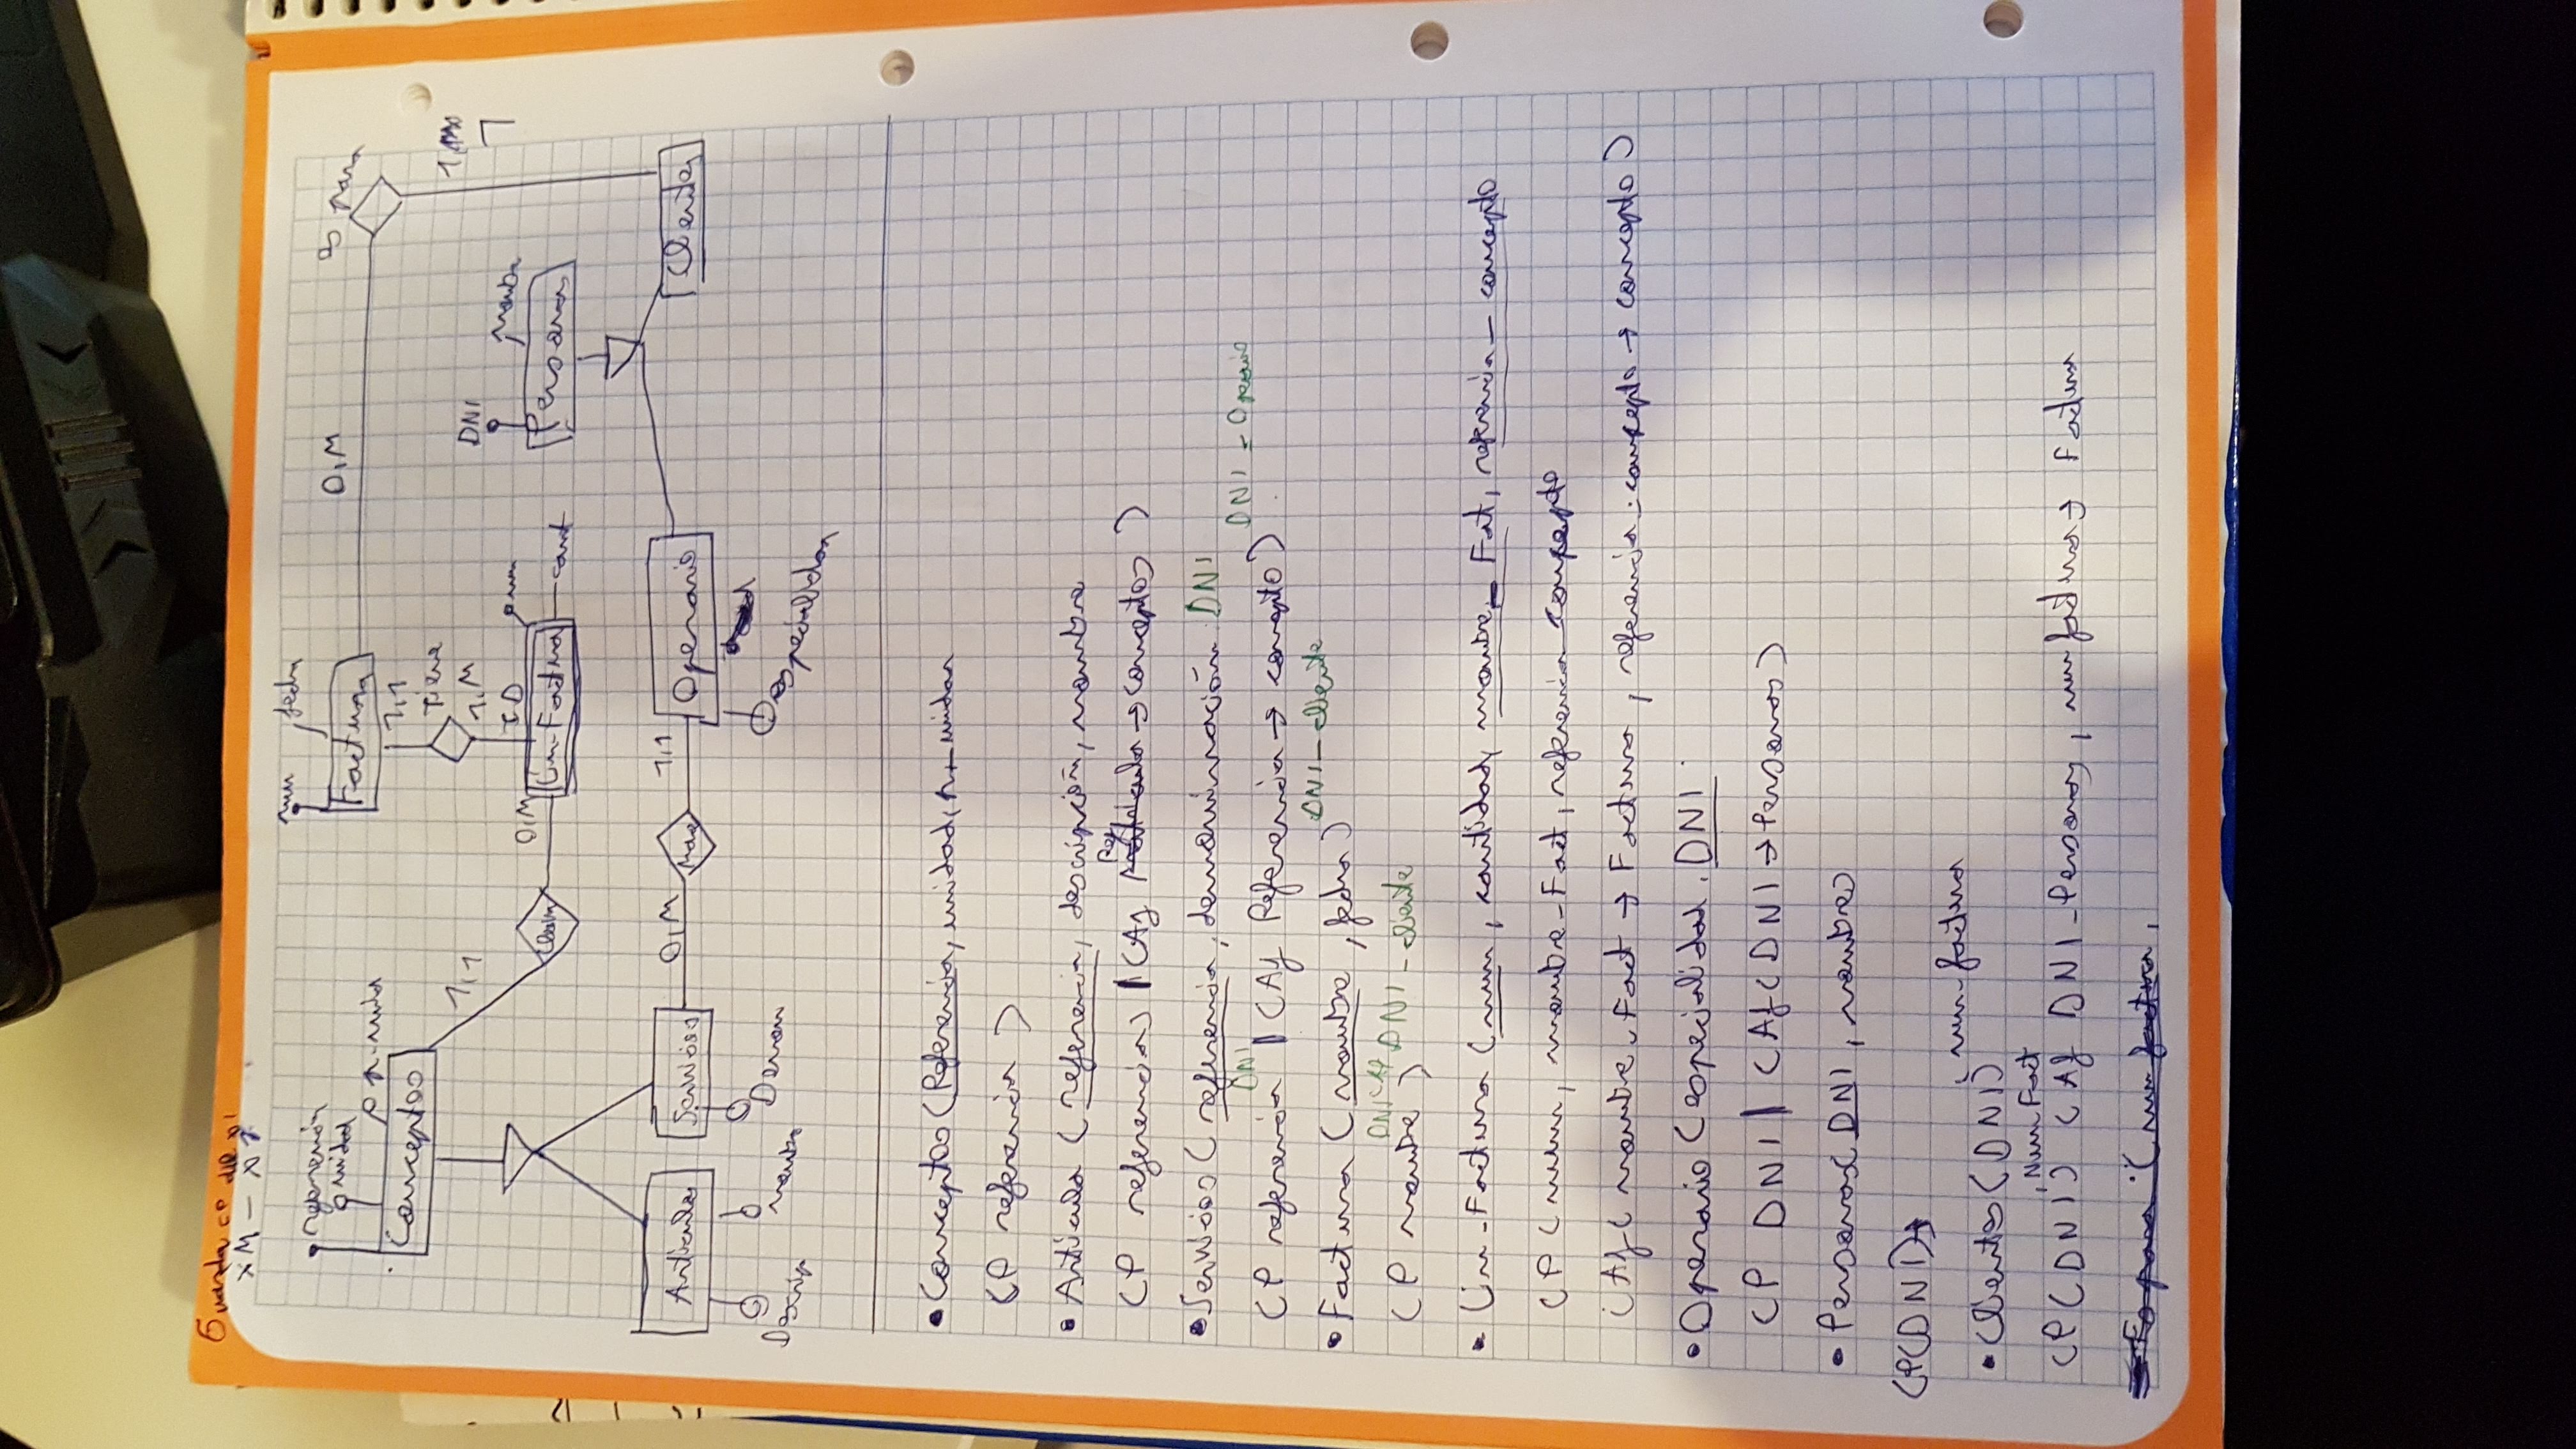 Guarda CP del x1
xM - x1
referencia
unidad
p-unida
Conceptos
num
fecha
Factura
0,M
es para
1,1
Tiene
1,M
ID
1,1
0,M
Lin-Factura
num
cant
DNI
Nombre
Personas
1
Articulo
Servicios
0,M
1,1
Operario
Clientes
Descrip
nombre
Denom
especialidad
• Conceptos (Referencia, unidad, p_unidad
CP referencia )
• Articulo ( referencia, descripción, nombre
CP referencia) | (Aj Ref → conceptos )
• Servicios ( referencia, denominación DNI
DNI
DNI - Operario
CP referencia | (Aj Referencia → concepto)
DNI - cliente
• Factura ( nombre , fecha)
DNI
CP nombre ) DNI - cliente
• Lin-Factura (num, cantidad, nombre_Fat, referencia_concepto
CP (num, nombre-Fact, referencia concepto
(Aj( nombre-Fact → Factura, referencia-concepto → concepto)
• Operario (especialidad, DNI
CP DNI | (Aj( DNI → Personas)
• Personas( DNI, nombre)
CP(DNI)
, num-factura
• Clientes (DNI)
, Num Fact
CP(DNI) (Aj DNI-Personas, num factura → Factura
Es para ( num factura,